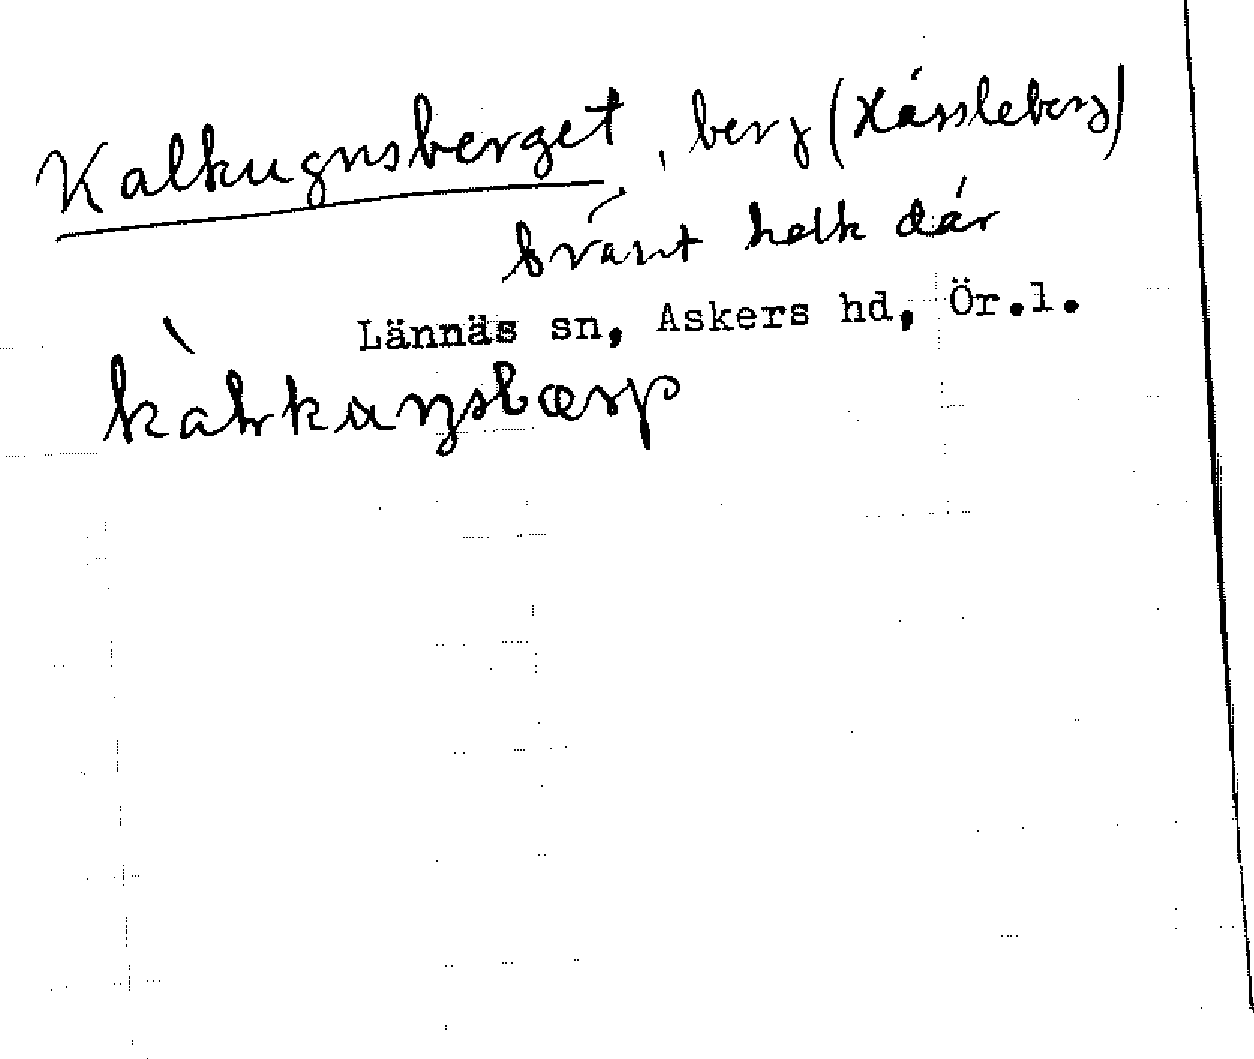 Kalkugnsberget, berg (Hässleberg)
bränt kalk där
Lännäs sn, Askers hd, Ör.l.